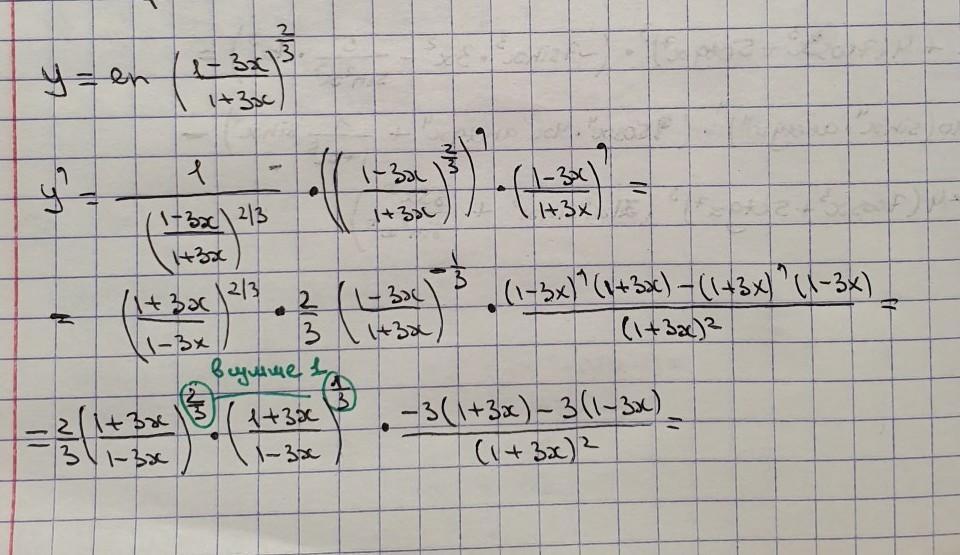 y = ln ((1-3x)/(1+3x))^(2/3)
y' = 1/((1-3x)/(1+3x))^(2/3) • (((1-3x)/(1+3x))^(2/3))' • ((1-3x)/(1+3x))' =
= ((1+3x)/(1-3x))^(2/3) • 2/3 ((1-3x)/(1+3x))^(-1/3) • ((1-3x)'(1+3x) - (1+3x)'(1-3x))/(1+3x)² =
в сумме 1
= 2/3 ((1+3x)/(1-3x))^(2/3) • ((1+3x)/(1-3x))^(1/3) • (-3(1+3x) - 3(1-3x))/(1+3x)² =